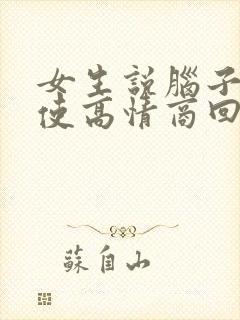 女生说腦子
使高情商回
蘇自山